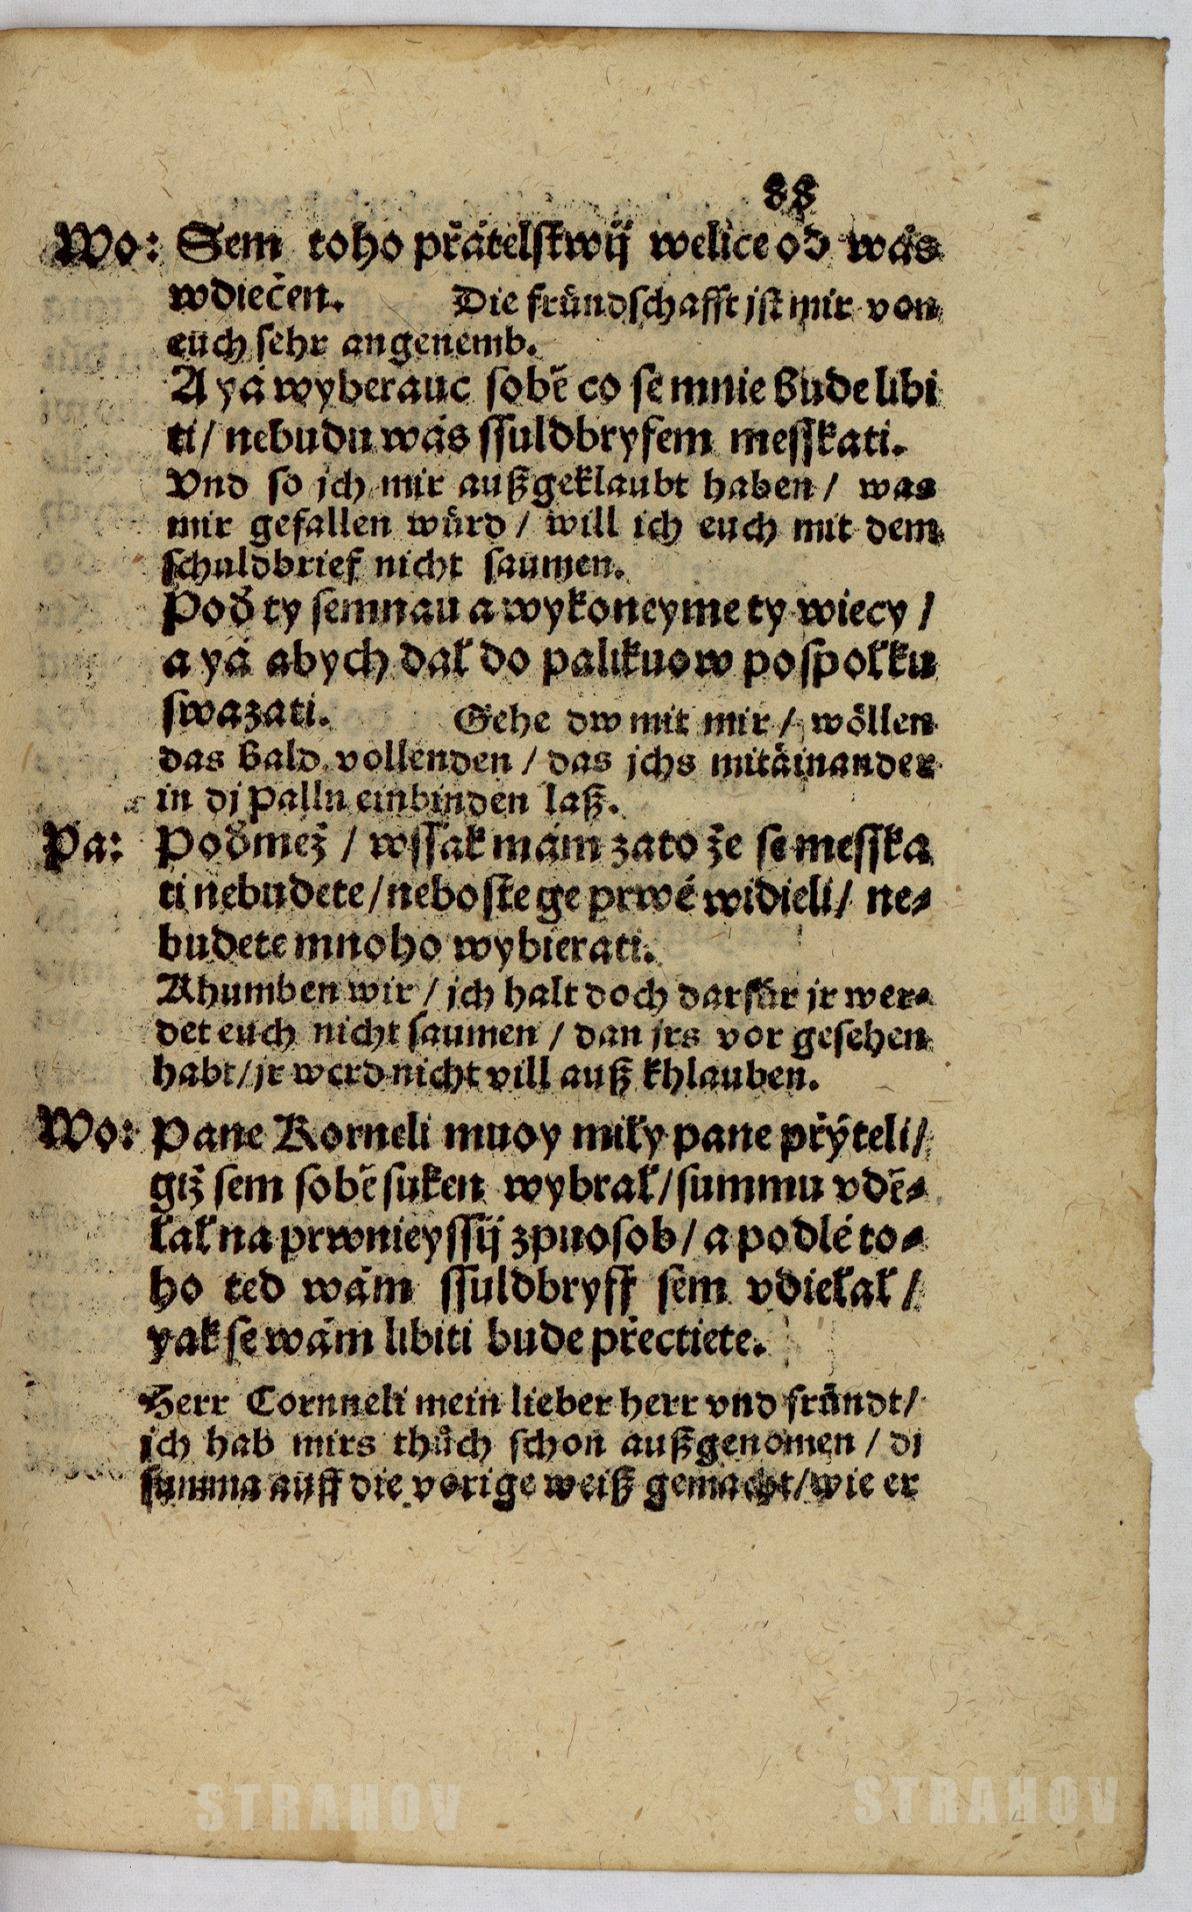 88
Wo: Sem toho přátelſtwij welice od wás
wdiečen. Die fründſchafft jſt mir von
euch ſehr angenemb.
A yá wyberauc ſobě co ſe mnie bude libi
ti / nebudu wás ſſuldbryfem meſſkati.
Vnd ſo jch mir außgeklaubt haben / was
mir gefallen würd / will ich euch mit dem
ſchuldbrief nicht ſaumen.
Poď ty ſemnau a wykoneyme ty wiecy /
a yá abych dał do palikuow poſpołku
ſwazati. Gehe dw mit mir / wöllen
das bald vollenden / das jchs mitäinander
in dj Palln einbinden laß.
Pa: Poďmež / wſſak mám zato že ſe meſſka
ti nebudete / nebo ſte ge prwé widieli / ne⸗
budete mnoho wybierati.
Khumben wir / jch halt doch darfür jr wer⸗
det euch nicht ſaumen / dan jrs vor geſehen
habt / jr werd nicht vill auß khlauben.
Wo: Pane Korneli muoy miły pane přýteli /
giž ſem ſobě ſuken wybrał / ſummu vdě⸗
łał na prwnieyſſij zpuoſob / a podlé to⸗
ho ted wám ſſuldbryff ſem vdiełał /
yak ſe wám libiti bude přectiete.
Herr Cornneli mein lieber herr vnd fründt /
jch hab mirs thůch ſchon außgenomen / dj
ſumma auff die vorige weiß gemacht / wie er
STRAHOV STRAHOV